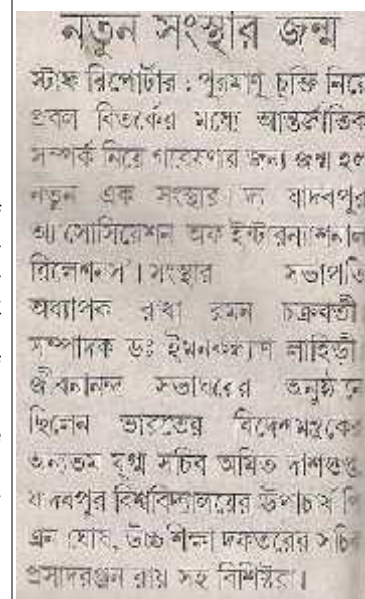 নতুন সংস্থার জন্ম
স্টাফ রিপোর্টার : পরমাণু চুক্তি নিয়ে
প্রবল বিতর্কের মধ্যে আন্তর্জাতিক
সম্পর্ক নিয়ে গবেষণার জন্য জন্ম হল
নতুন এক সংস্থার। 'দ্য যাদবপুর
অ্যাসোসিয়েশন অফ ইন্টারন্যাশনাল
রিলেশনস'। সংস্থার সভাপতি
অধ্যাপক রাধা রমন চক্রবর্তী
সম্পাদক ডঃ ইমনকল্যাণ লাহিড়ী।
জীবনানন্দ সভাঘরের অনুষ্ঠানে
ছিলেন ভারতের বিদেশমন্ত্রকের
অন্যতম যুগ্ম সচিব অমিত দাশগুপ্ত,
যাদবপুর বিশ্ববিদ্যালয়ের উপাচার্য পি
এন ঘোষ, উচ্চ শিক্ষা দফতরের সচিব
প্রসাদরঞ্জন রায় সহ বিশিষ্টরা।